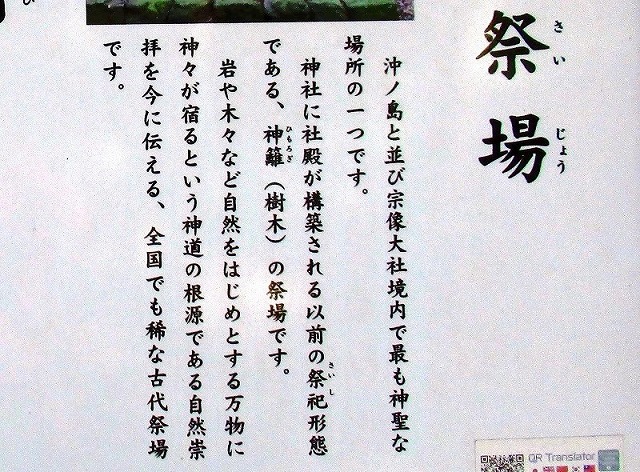 祭場
さいじょう
沖ノ島と並び宗像大社境内で最も神聖な
場所の一つです。
神社に社殿が構築される以前の祭祀形態
さいし
である、神籬（樹木）の祭場です。
ひもろぎ
岩や木々など自然をはじめとする万物に
神々が宿るという神道の根源である自然崇
拝を今に伝える、全国でも稀な古代祭場
です。
QR Translator